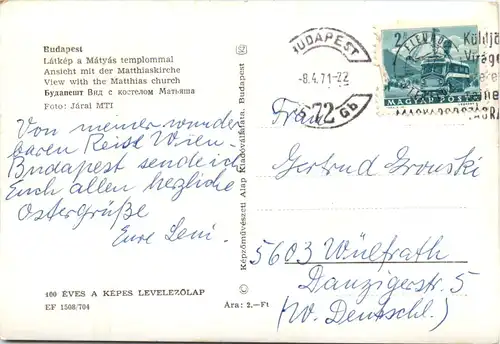 Budapest
Látkép a Mátyás templommal
Ansicht mit der Matthiaskirche
View with the Matthias church
Будапешт Вид с костелом Матьяша
Foto: Járai MTI
Von meiner wunder
baren Reise Wien-
Budapest sende ich
Euch allen herzliche
Ostergrüße
Eure Leni.
100 ÉVES A KÉPES LEVELEZŐLAP
EF 1508/704
Ára: 2.-Ft
© Képzőművészeti Alap Kiadóvállalata, Budapest
BUDAPEST
-8.4.71-22
72
2
MAGYAR POSTA
Frau
Gertrud Gronski
5603 Wülfrath
Danzigerstr. 5
(W. Deutschl.)